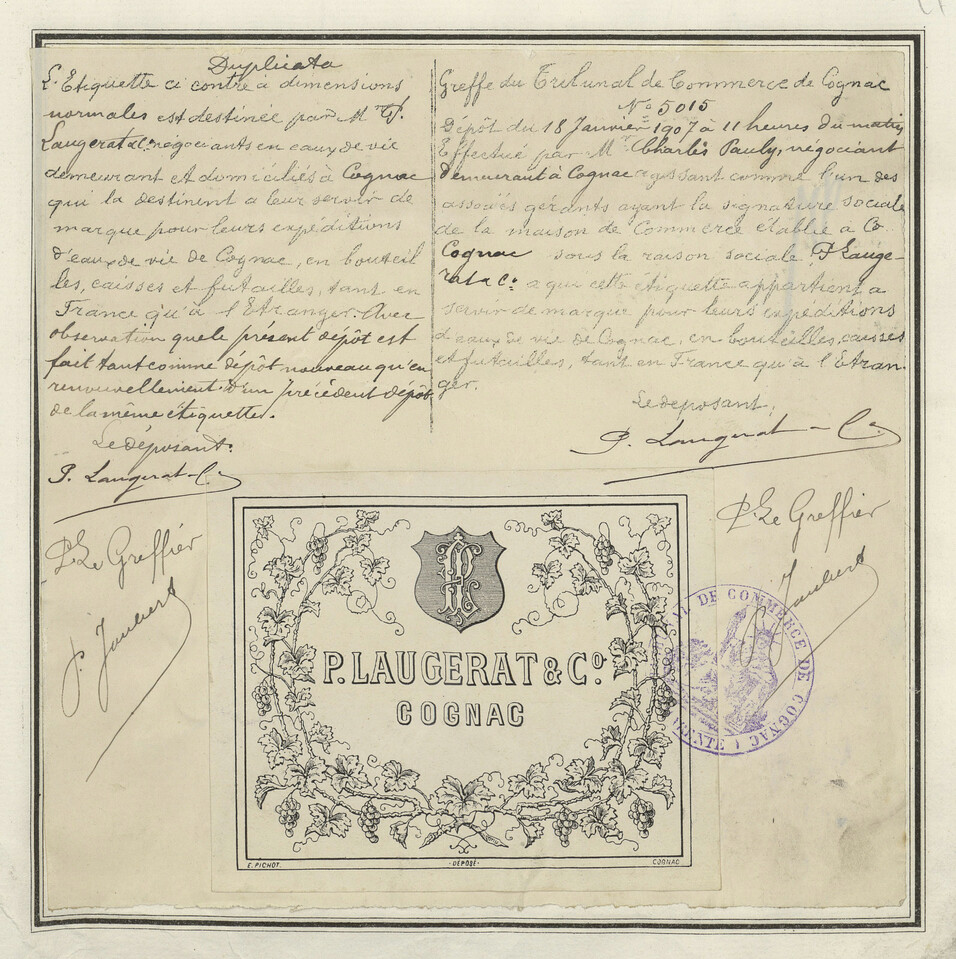 Duplicata
L'Etiquette ci contre à dimensions
normales est destinée par M. P.
Laugerat & Co. négociants en eaux de vie
demeurant et domiciliés à Cognac
qui la destinent a leur servir de
marque pour leurs expéditions
d'eaux de vie de Cognac, en bouteil
les, caisses et futailles, tant en
France qu'à l'Etranger. Avec
observation que le présent dépôt est
fait tant comme dépôt nouveau qu'en
renouvellement d'un précédent dépôt
de la même étiquette.
Le déposant:
P. Laugerat & Co.
P. Le Greffier
J. Joubert
Greffe du Tribunal de Commerce de Cognac
No. 5015
Dépôt du 18 Janvier 1907 à 11 heures du matin
Effectué par Mr. Charles Pauly, négociant
demeurant à Cognac agissant comme l'un des
associés gérants ayant la signature sociale
de la maison de Commerce établie à Co
Cognac sous la raison sociale P. Lauge-
rat & Co. a qui cette étiquette appartient a
servir de marque pour leurs expéditions
d'eaux de vie de Cognac, en bouteilles, caisses
et futailles, tant en France qu'à l'Etran-
ger.
Le déposant,
P. Laugerat & Co.
P. Le Greffier
J. Joubert
P. LAUGERAT & Co.
COGNAC
E. PICHOT.
·DÉPOSÉ·
COGNAC
DE COMMERCE DE COGNAC